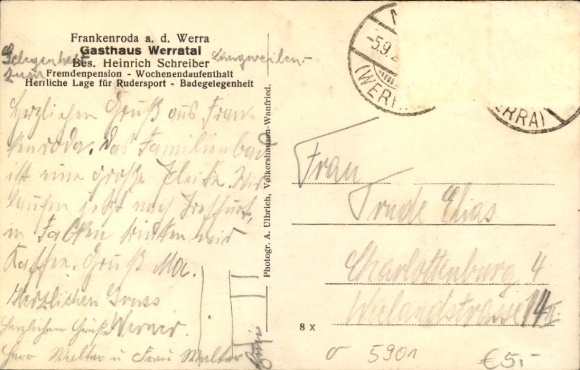 Frankenroda a. d. Werra
Gasthaus Werratal
Bes. Heinrich Schreiber
Fremdenpension - Wochenendaufenthalt
Herrliche Lage für Rudersport - Badegelegenheit
Gelegenheit
zum
Langweilen
Herzlichen Gruß aus Fran-
kenroda. Das Familienbad
ist eine große Pleite. Wir
laufen jetzt nach Treffurt,
in Falken trinken wir
Kaffee. Gruß Ma.
Herzlichen Gruss
herzlichen Grüße Werner.
Herr Walter u Frau Walter
Photogr. A. Ulbrich, Volkershausen-Wanfried.
5.9.2
(WER
ERRA)
Frau
Trude Elias
Charlottenburg 4
Wielandstrasse 14 II
8 x
5901
€5,-